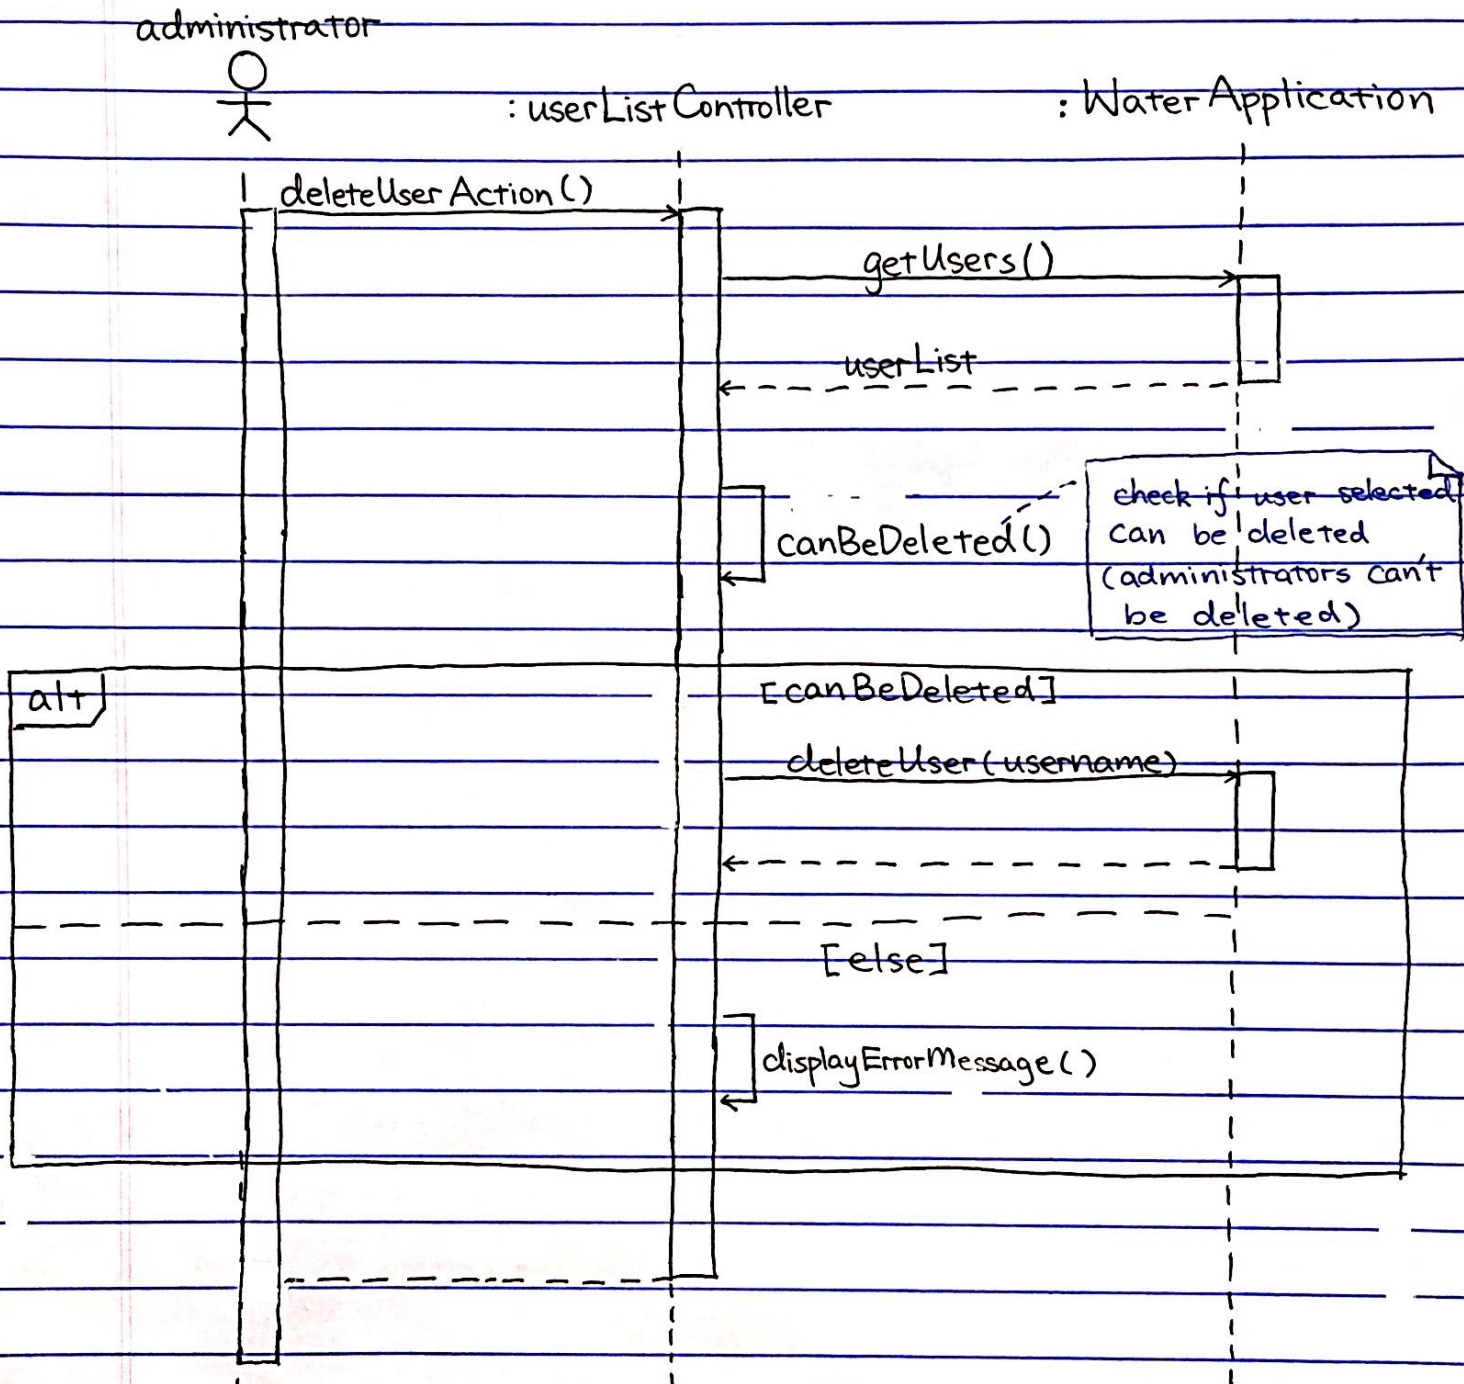 administrator
: userListController
: WaterApplication
deleteUserAction()
getUsers()
userList
canBeDeleted()
check if user selected
can be deleted
(administrators can't
be deleted)
alt
[canBeDeleted]
deleteUser(username)
[else]
displayErrorMessage()